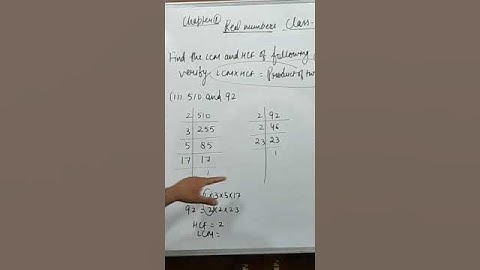 Chapter 1 Real numbers Class-
Find the LCM and HCF of following
verify LCM×HCF = Product of two
(ii) 510 and 92
2 510
3 255
5 85
17 17
1
2 92
2 46
23 23
1
×3×5×17
92 = 2×2×23
HCF = 2
LCM =